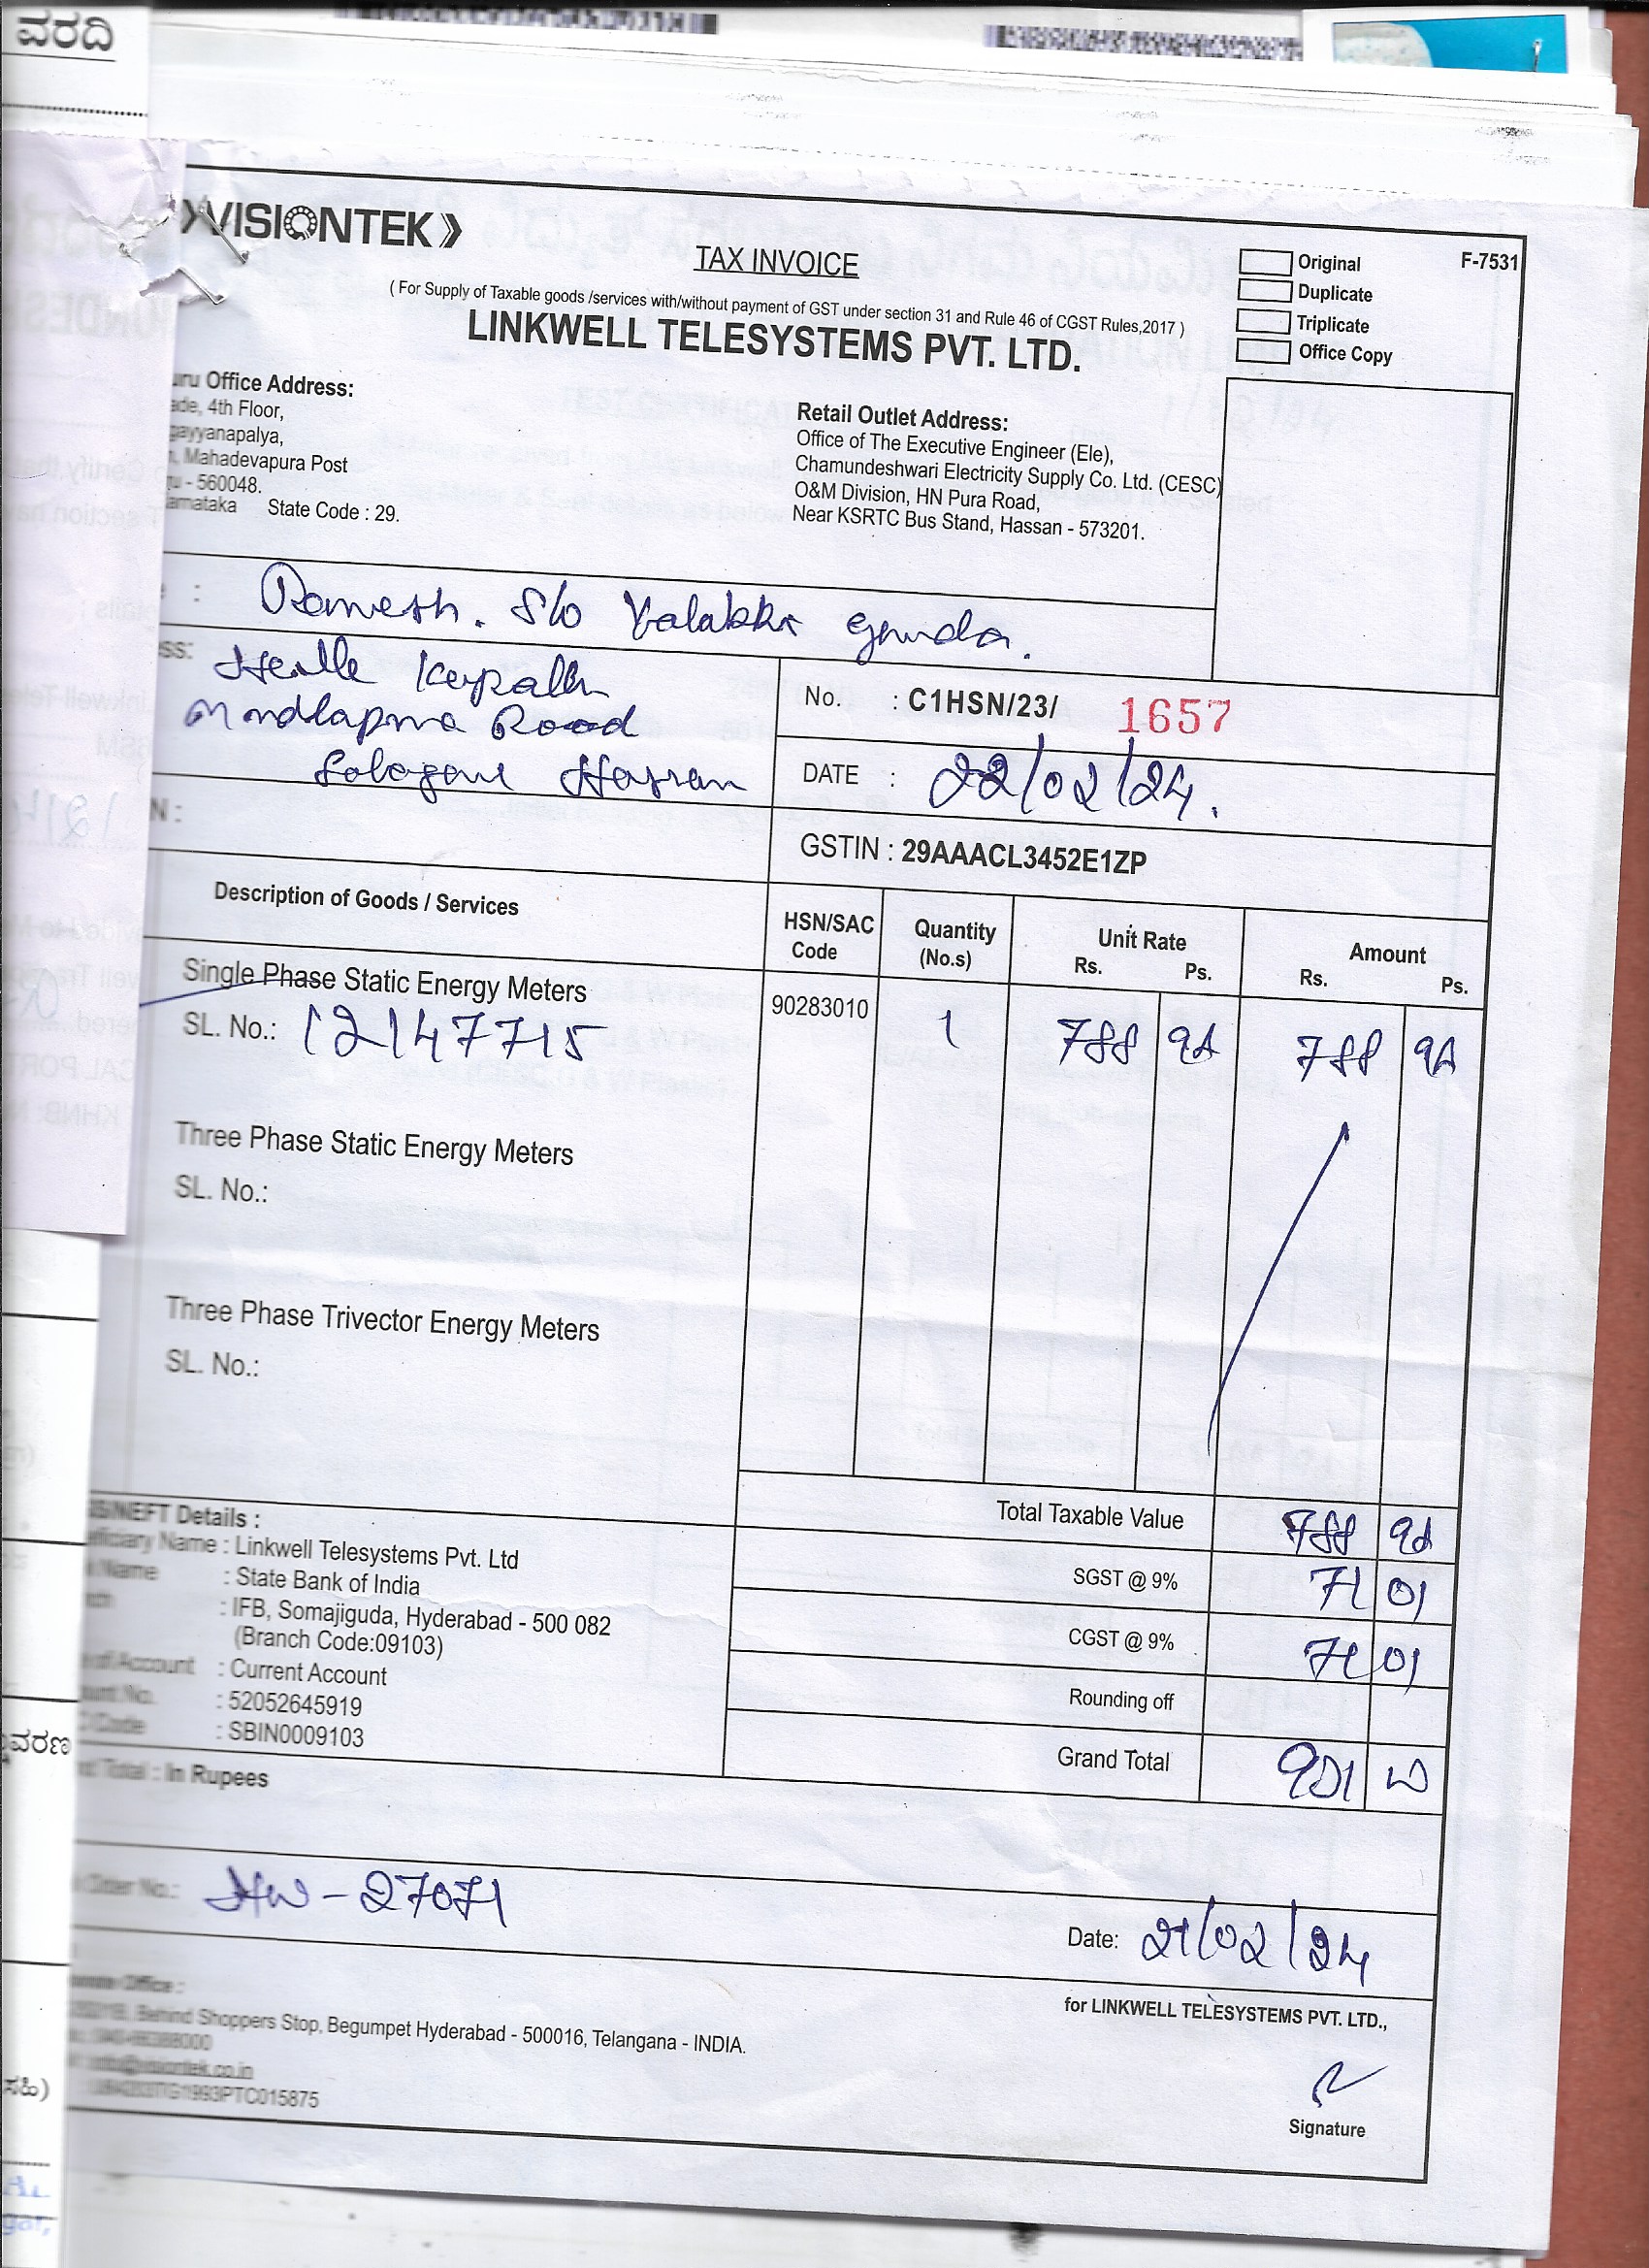 ವರದಿ
VISIONTEK
TAX INVOICE
Original
F-7531
Duplicate
Triplicate
Office Copy
( For Supply of Taxable goods /services with/without payment of GST under section 31 and Rule 46 of CGST Rules,2017 )
LINKWELL TELESYSTEMS PVT. LTD.
Office Address:
4th Floor,
Mahadevapura Post
- 560048.
State Code : 29.
Retail Outlet Address:
Office of The Executive Engineer (Ele),
Chamundeshwari Electricity Supply Co. Ltd. (CESC)
O&M Division, HN Pura Road,
Near KSRTC Bus Stand, Hassan - 573201.
: Ramesh. S/o gowda.
Road
Hassan
No. : C1HSN/23/ 1657
DATE : 22/02/24.
N :
GSTIN : 29AAACL3452E1ZP
Description of Goods / Services
HSN/SAC Code
Quantity (No.s)
Unit Rate Rs. Ps.
Amount Rs. Ps.
Single Phase Static Energy Meters
90283010 1 788 92 788 92
SL. No.: 12147715
Three Phase Static Energy Meters
SL. No.:
Three Phase Trivector Energy Meters
SL. No.:
Total Taxable Value 788 92
SGST @ 9% 71 01
CGST @ 9% 71 01
Rounding off
Grand Total 931
/NEFT Details :
Name : Linkwell Telesystems Pvt. Ltd
Name : State Bank of India
: IFB, Somajiguda, Hyderabad - 500 082
(Branch Code:09103)
of Account : Current Account
No. : 52052645919
Code : SBIN0009103
Total : In Rupees
Order No.: HW-27071
Date: 21/02/24
Office :
Behind Shoppers Stop, Begumpet Hyderabad - 500016, Telangana - INDIA.
for LINKWELL TELESYSTEMS PVT. LTD.,
Signature